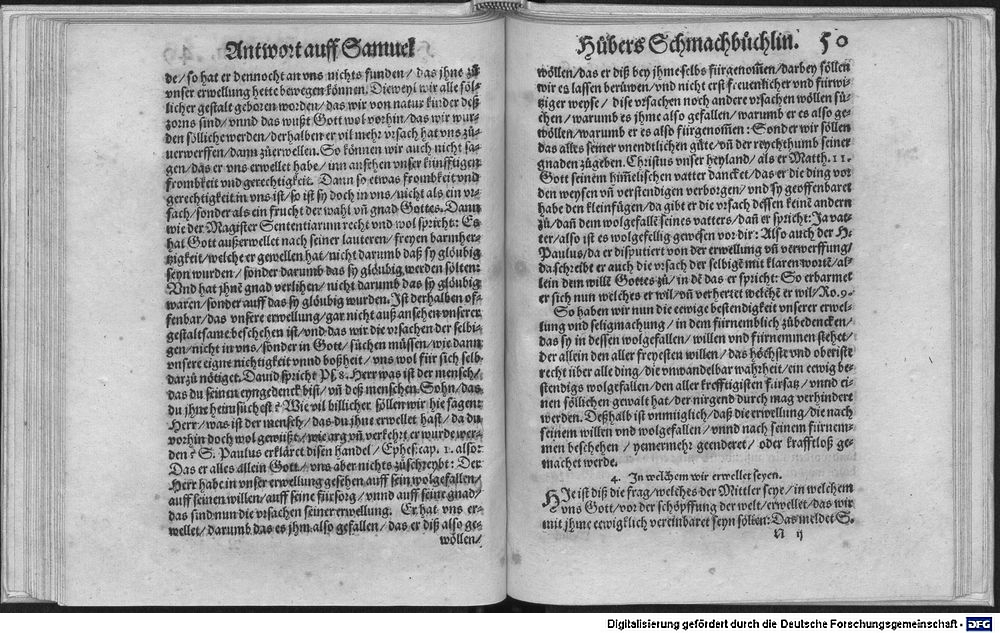 Antwort auff Samuel
de/ so hat er dennocht an vns nichts funden/ das jhne zů
vnser erwellung hette bewegen können. Dieweyl wir alle söl-
licher gestalt geboren worden/ das wir von natur kinder deß
zorns sind/ vnnd das wußt Gott wol vorhin/ das wir wur-
den söllicht werden/ derhalben er vil mehr vrsach hat vns zů-
uerwerffen/ dann zůerwellen. So können wir auch nicht sa-
gen/ das er vns erwellet habe/ inn ansehen vnser künfftigen
frombkeit vnd gerechtigkeit. Dann so etwas frombkeit vnd
gerechtigkeit in vns ist/ so ist sy doch in vns/ nicht als ein vr-
sach/ sonder als ein frucht der wahl vñ gnad Gottes. Dann
wie der Magister Sententiarum recht vnd wol spricht: Es
hat Gott außerwellet nach seiner lauteren/ freyen barmher-
tzigkeit/ welche er gewellen hat/ nicht darumb daß sy glöubig
seyn wurden/ sonder darumb das sy glöubig werden solten:
Vnd hat jhnē gnad verlihen/ nicht darumb das sy glöubig
waren/ sonder auff das sy glöubig wurden. Ist derhalben of-
fenbar/ das vnsere erwellung/ gar nicht auß ansehen vnserer
gestaltsame beschehen ist/ vnd das wir die vrsachen der selbi-
gen/ nicht in vns/ sonder in Gott/ sůchen müssen/ wie dann
vnsere eigne nichtigkeit vnnd boßheit/ vns wol für sich selb
darzů nötiget. David spricht Ps. 8. Herr was ist der mensch/
das du seinen eyngedenck bist/ vñ deß menschen Sohn/ das
du jhne heimsůchest? Wie vil billicher söllen wir hie sagen:
Herr/ was ist der mensch/ das du jhne erwellet hast/ da du
vorhin doch wol gewüßt/ wie arg vñ verkehrt er wurde wer-
den? S. Paulus erkläret disen handel/ Ephes. cap. 1. also:
Das er alles allein Gott/ vns aber nichts zůschreybt: Der
Herr habe in vnser erwellung gesehen auff sein wolgefallen/
auff seinen willen/ auff seine fürsorg/ vnnd auff seine gnad/
das sind nun die vrsachen seiner erwellung. Er hat vns er-
wellet/ darumb das es jhm also gefallen/ das er diß also ge-
wöllen/
Hůbers Schmachbüchlin. 50
wöllen/ das er diß bey jhme selbs fürgenom̄en/ darbey söllen
wir es lassen berůwen/ vnd nicht erst freuenlicher vnd fürwi-
tziger weyse/ dise vrsachen noch andere vrsachen wöllen sů-
chen/ warumb es jhme also gefallen/ warumb er es also ge-
wöllen/ warumb er es also fürgenom̄en: Sonder wir söllen
das alles seiner vnendtlichen güte/ vñ der reychthumb seiner
gnaden zůgeben. Christus vnser heyland/ als er Matth. 11.
Gott seinem him̄elischen vatter dancket/ das er die ding vor
den weysen vñ verstendigen verborgen/ vnd sy geoffenbaret
habe den kleinfügen/ da gibt er die vrsach dessen keinē andern
zů/ dañ dem wolgefallē seines vatters/ dañ er spricht: Ja vat-
ter/ also ist es wolgefellig gewesen vor dir: Also auch der H.
Paulus/ da er disputiert von der erwellung vñ verwerffung/
da schreibt er auch die vrsach der selbigē mit klaren wortē/ al-
lein dem willē Gottes zů/ in dē das er spricht: So erbarmet
er sich nun welches er wil/ vñ verhertet welchē er wil/ Ro. 9.
So haben wir nun die eewige bestendigkeit vnserer erwel-
lung vnd seligmachung/ in dem fürnemblich zůbedencken/
das sy in dessen wolgefallen/ willen vnd fürnemmen stehet/
der allein den aller freyesten willen/ das höchste vnd oberiste
recht über alle ding/ die vnwandelbar wahrheit/ ein eewig be-
stendigs wolgefallen/ den aller krefftigisten fürsatz/ vnnd ei-
nen söllichen gewalt hat/ der nirgend durch mag verhindert
werden. Deßhalb ist vnmüglich/ daß die erwellung/ die nach
seinem willen vnd wolgefallen/ vnnd nach seinem fürnem-
men beschehen/ yemermehr geenderet/ oder krafftloß ge-
machet werde.
4. In welchem wir erwellet seyen.
HIe ist diß die frag/ welches der Mittler seye/ in welchem
vns Gott/ vor der schöpffung der welt/ erwellet/ das wir
mit jhme eewigklich vereinbaret seyn sölten: Das meldet S.
N ij
Digitalisierung gefördert durch die Deutsche Forschungsgemeinschaft - DFG